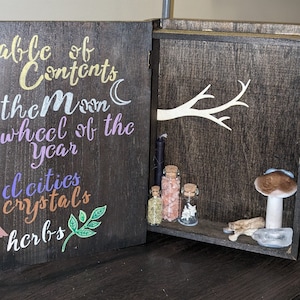 able of
Contents
the Moon
wheel of the
Year
d cities
crystals
herbs